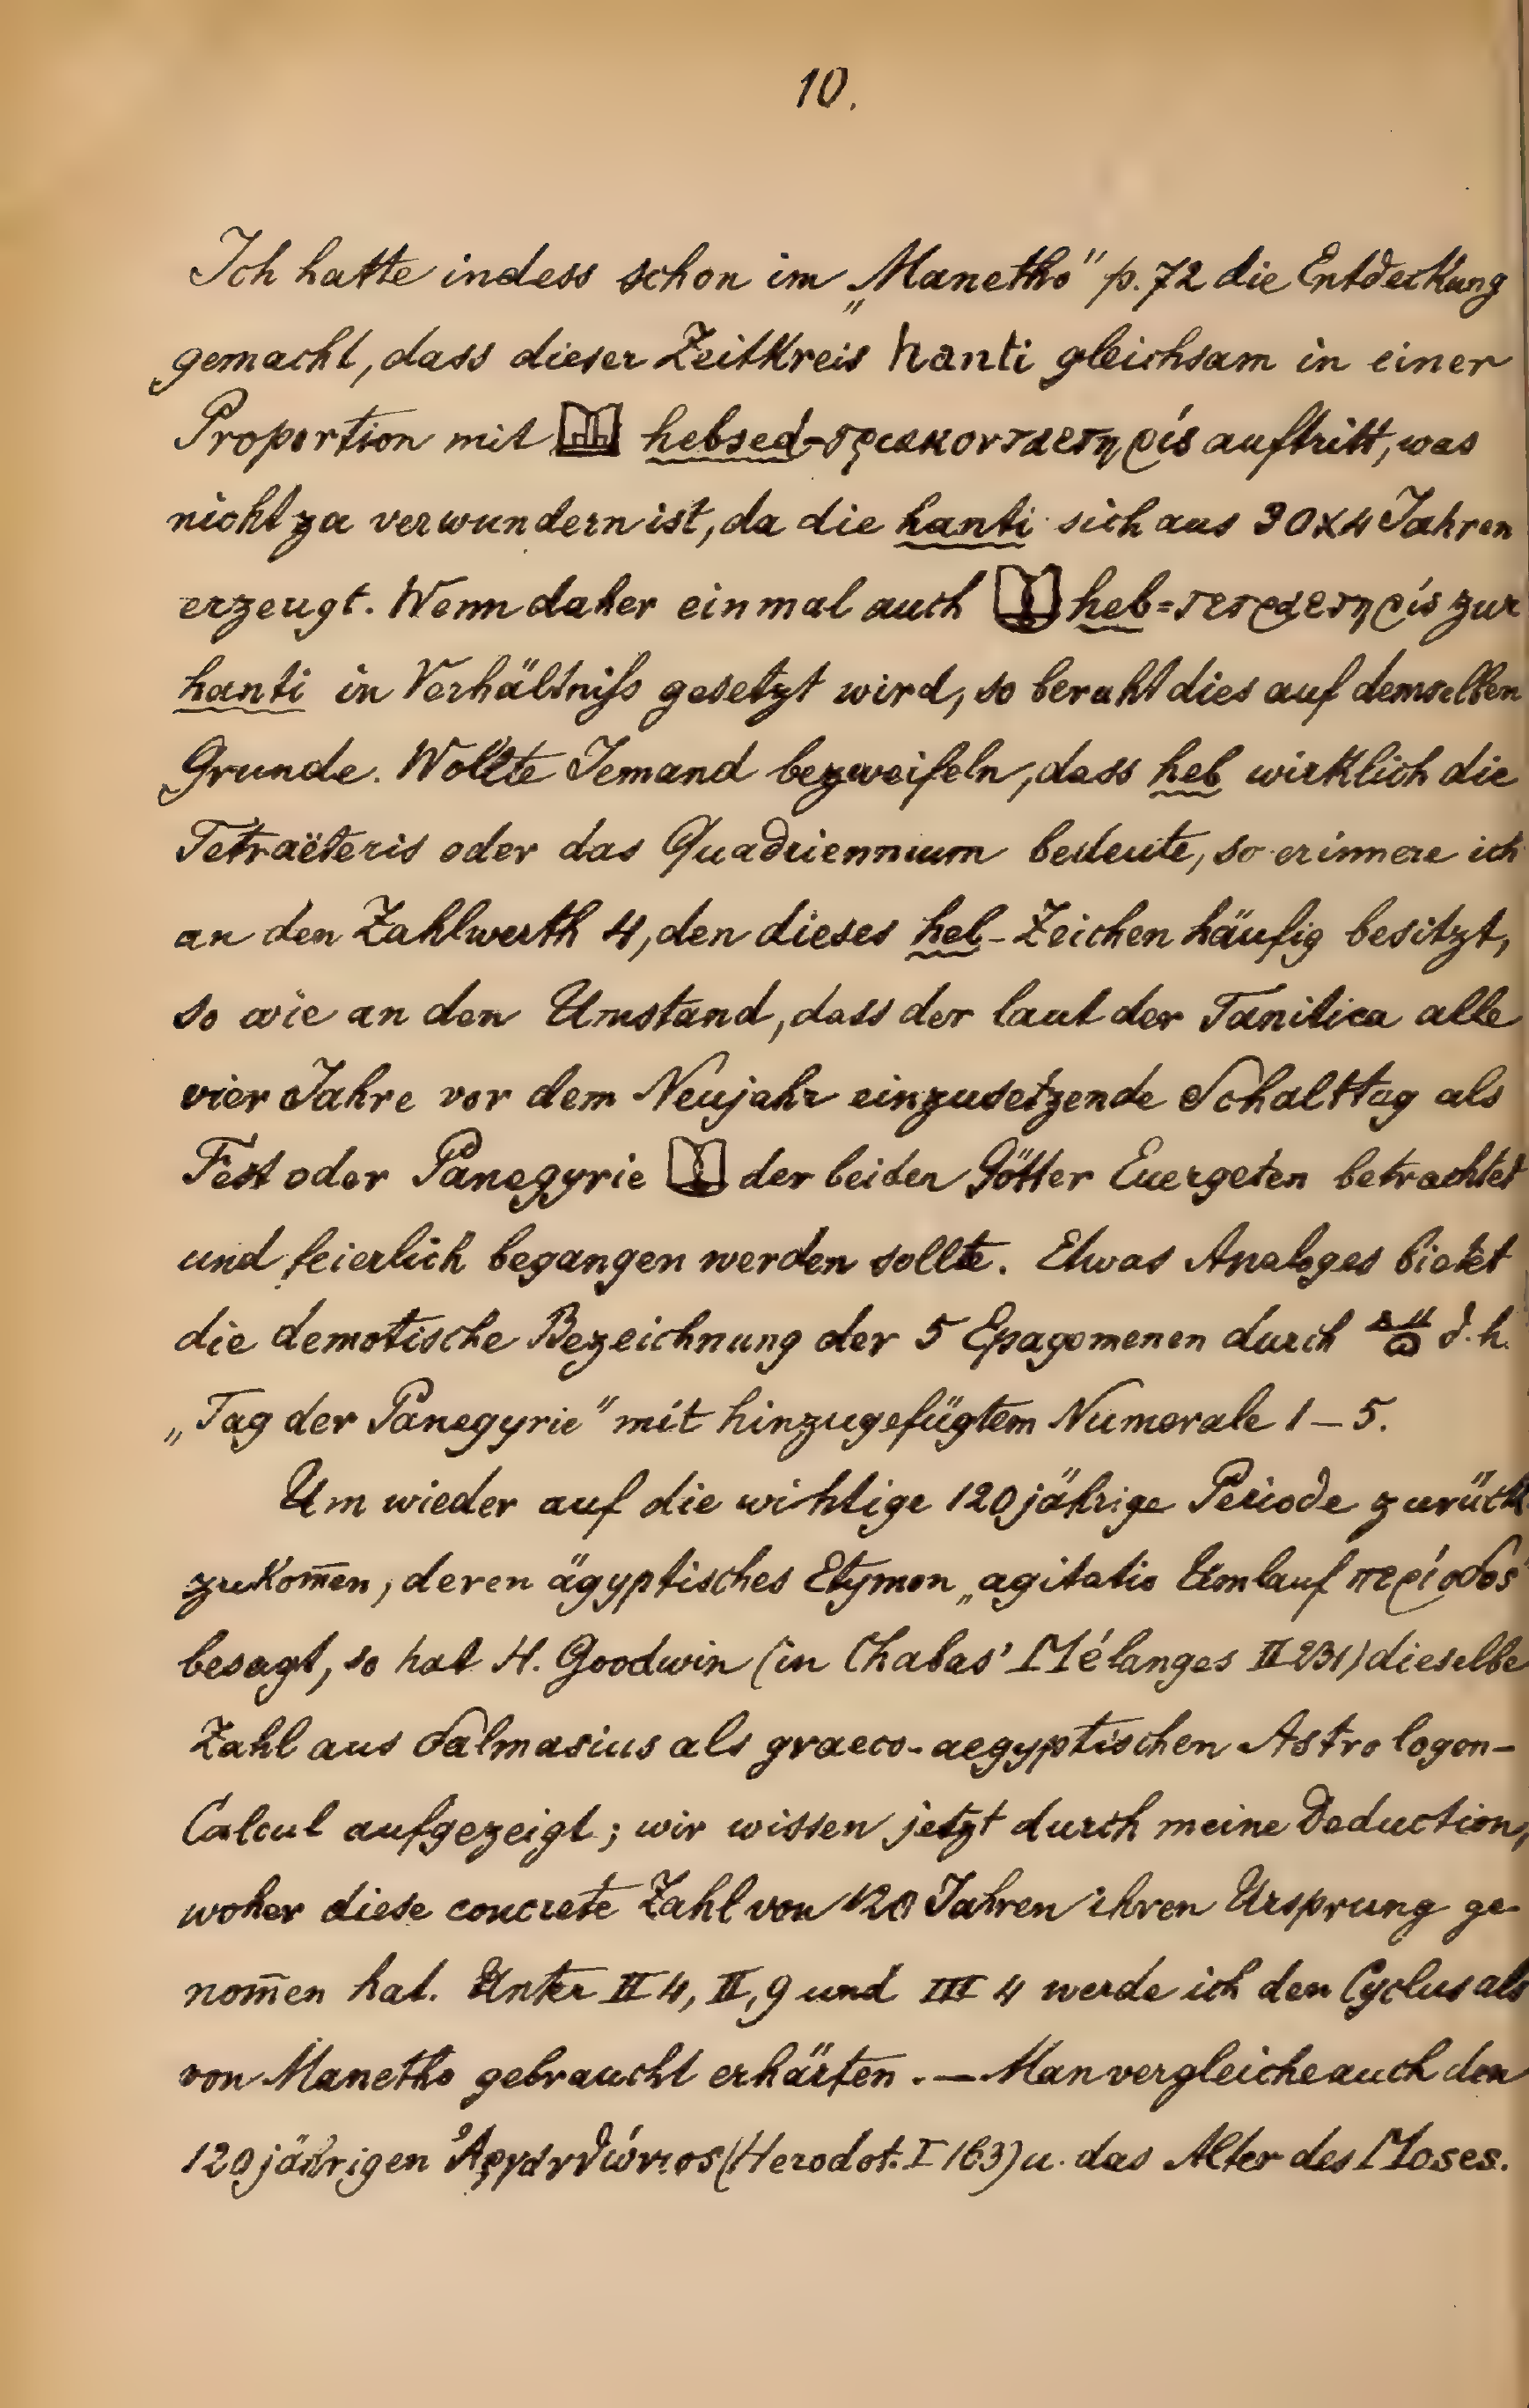 10.
Ich hatte indess schon im „Manetho" p. 72 die Entdeckung
gemacht, dass dieser Zeitkreis hanti gleichsam in einer
Proportion mit hebsed-τριακονταετηρίς auftritt, was
nicht zu verwundern ist, da die hanti sich aus 30x4 Jahren
erzeugt. Wenn daher einmal auch heb=τετραετηρίς zur
hanti in Verhältniſs gesetzt wird, so beruht dies auf demselben
Grunde. Wollte Jemand bezweifeln, dass heb wirklich die
Tetraëteris oder das Quadriennium bedeute, so erinnere ich
an den Zahlwerth 4, den dieses heb-Zeichen häufig besitzt,
so wie an den Umstand, dass der laut der Tanitica alle
vier Jahre vor dem Neujahr einzusetzende Schalttag als
Fest oder Panegyrie der beiden Götter Euergeten betrachtet
und feierlich begangen werden sollte. Etwas Analoges bietet
die demotische Bezeichnung der 5 Epagomenen durch d. h.
„Tag der Panegyrie" mit hinzugefügtem Numerale 1–5.
Um wieder auf die wichtige 120jährige Periode zurück
zukom̅en, deren ägyptisches Etymon „agitatio Umlauf περίοδος
besagt, so hat H. Goodwin (in Chabas' Mélanges II 231) dieselbe
Zahl aus Salmasius als graeco-aegyptischen Astrologen-
Calcul aufgezeigt; wir wissen jetzt durch meine Deduction,
woher diese concrete Zahl von 120 Jahren ihren Ursprung ge-
nom̅en hat. Unter II 4, II, 9 und III 4 werde ich den Cyclus als
von Manetho gebraucht erhärten. — Man vergleiche auch den
120jährigen Ἀργανθώνιος (Herodot. I 163) u. das Alter des Moses.